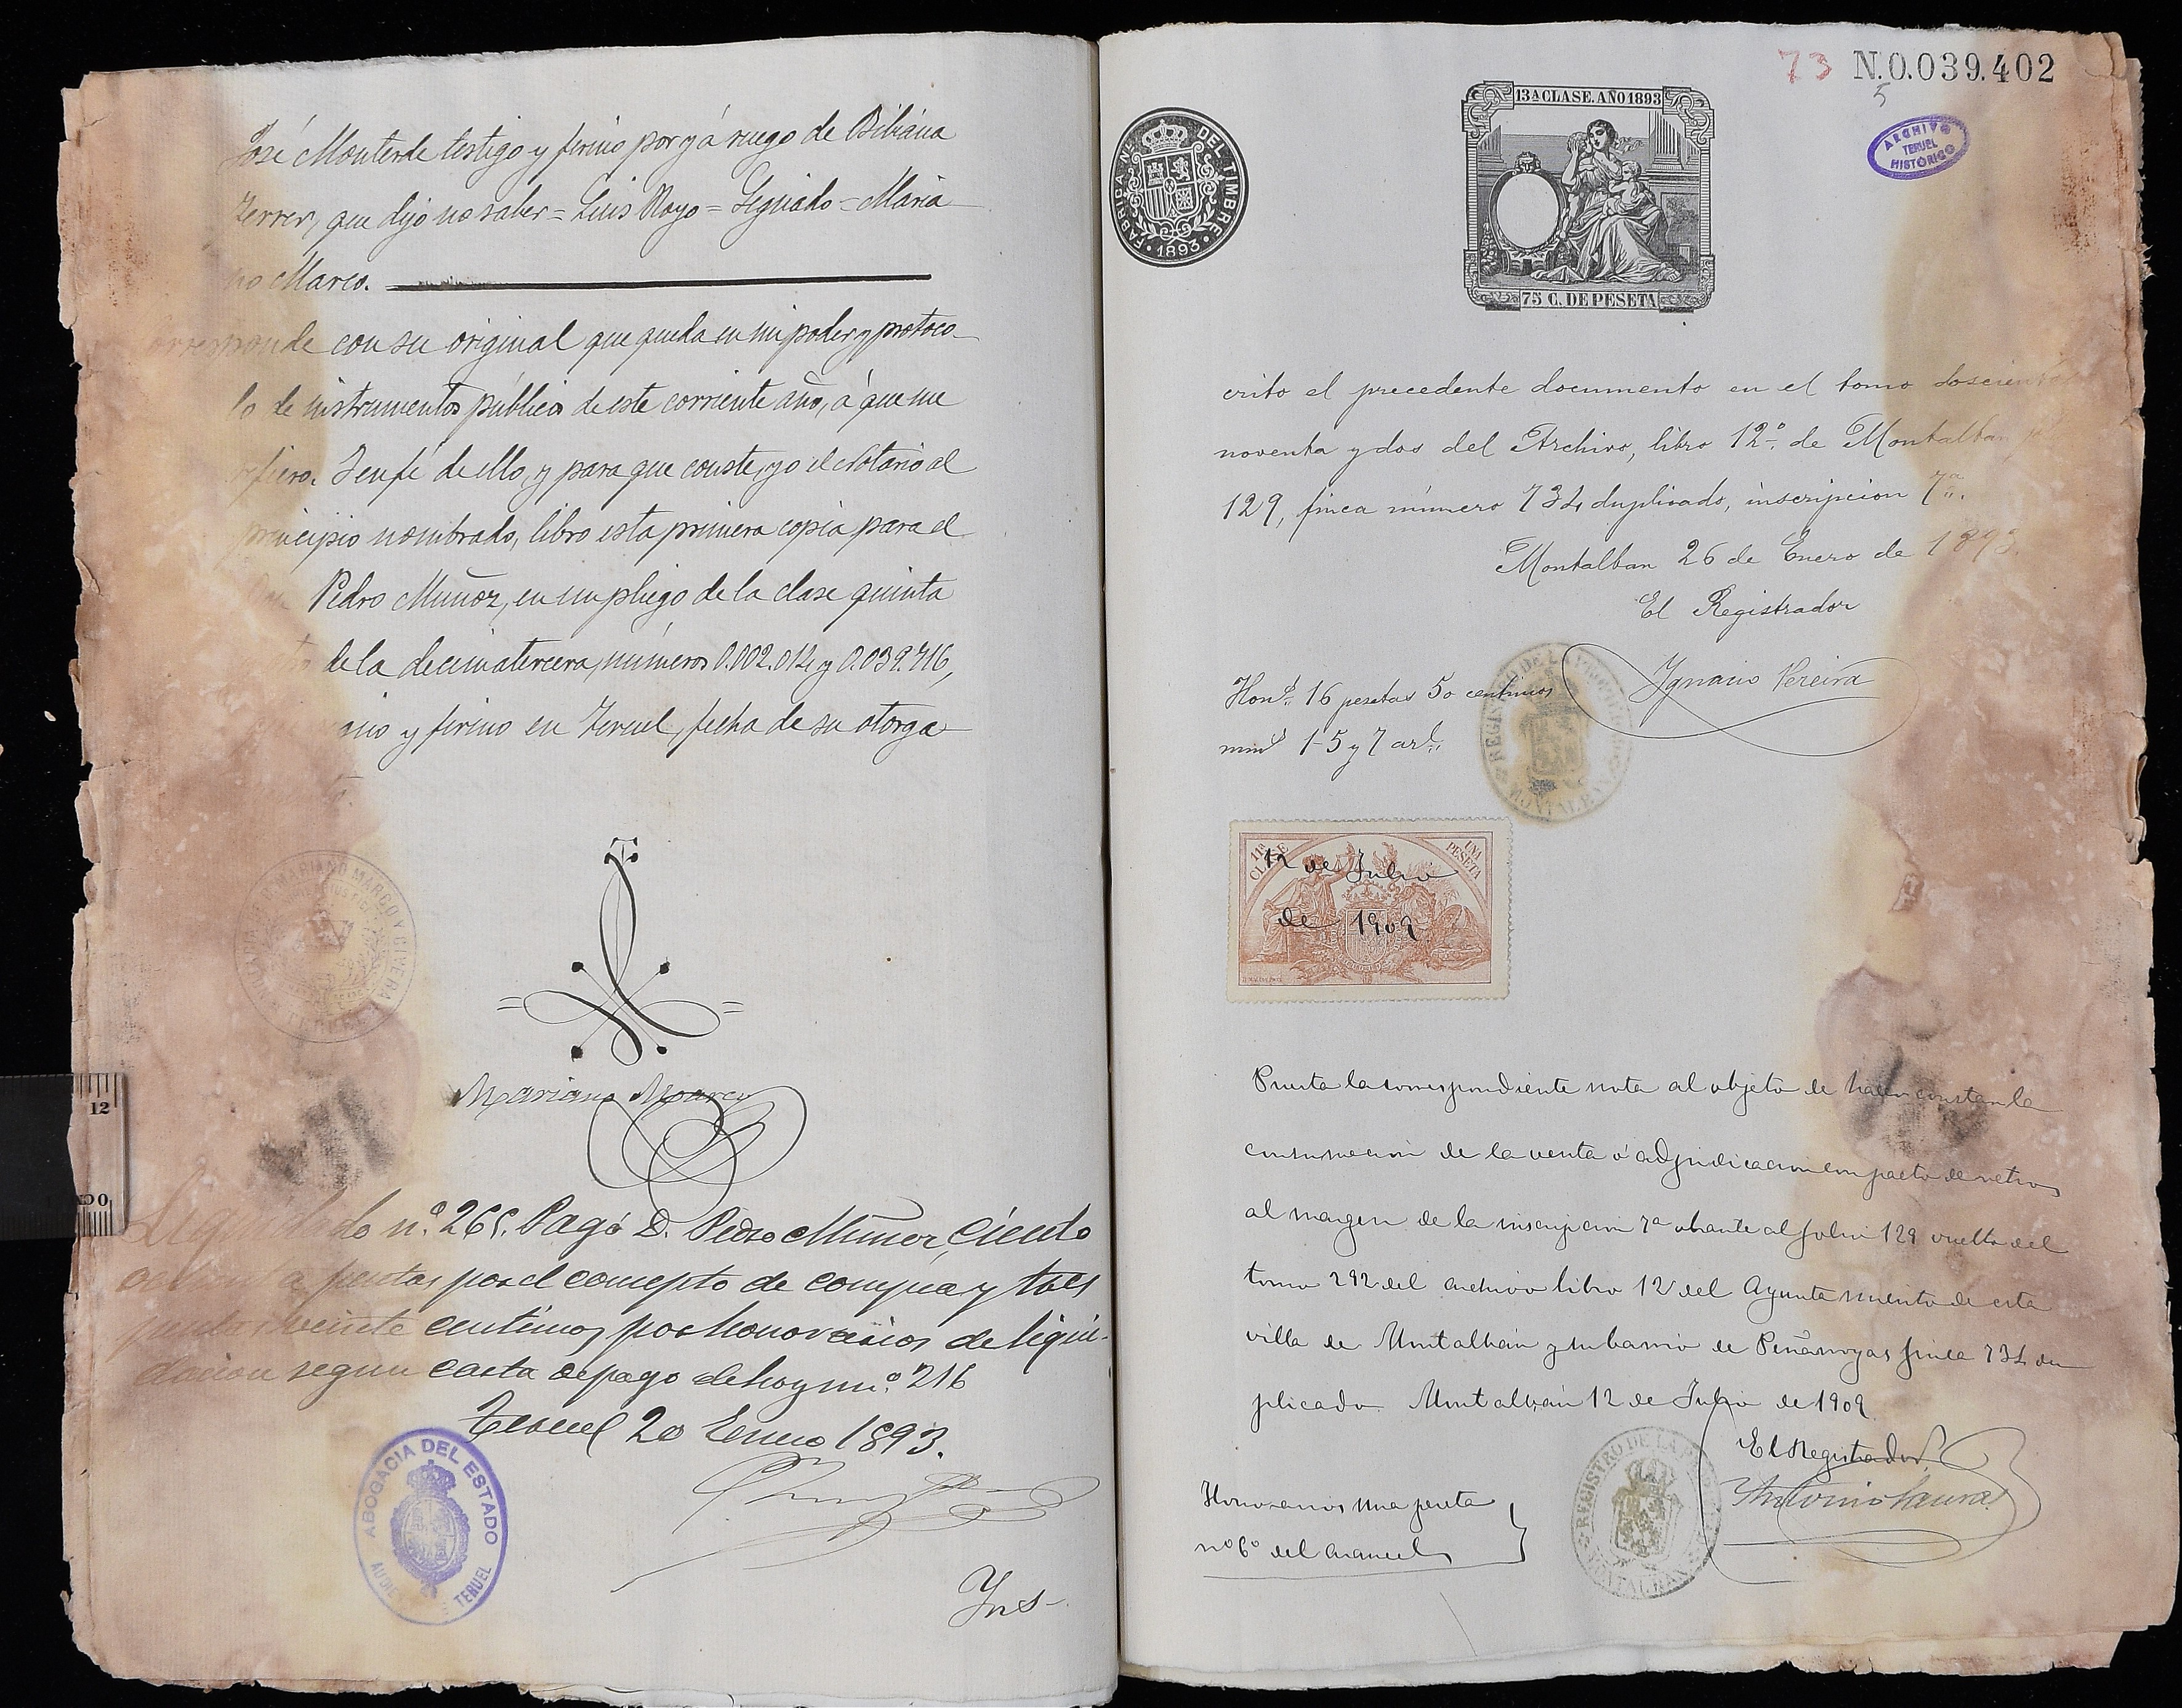 José Monterde testigo y firmo por y á ruego de Bibiana
Ferrer, que dijo no saber = Luis Royo = Signado = Maria
no Marco.
orresponde con su original que queda en mi poder y protoco
lo de instrumentos públicos de este corriente año, á que me
refiero. Denfé de ello, y para que conste, yo el Notario al
principio nombrado, libro esta primera copia para el
Don Pedro Muñoz, en un pliego de la clase quinta
de la decimatercera, números 0.002.014 y 0.039.716,
no y firmo en Teruel, fecha de su otorga
MARIANO MARCO Y CIVERA
TERUEL
Mariano Marco
12
Liquidado n.º 265. Pagó D. Pedro Muñoz, Ciento
ochenta pesetas por el concepto de compra y tres
pesetas veinte centimos por honorarios de liqui-
dacion segun carta de pago de hoy nu.º 216
Teruel 20 Enero 1893.
ABOGACIA DEL ESTADO
TERUEL
Yns-
73 N.0.039.402
5
ARCHIVO
TERUEL
HISTÓRICO
13ª CLASE. AÑO 1893
FABRICA Nal. DEL TIMBRE
1893
75 C. DE PESETA
crito el precedente documento en el tomo doscientos
noventa y dos del Archivo, libro 12º de Montalban, fol
129, finca número 734 duplicado, inscripcion 7ª.
Montalban 26 de Enero de 1893.
El Registrador
Ignacio Pereira
Hons. 16 pesetas 50 centimos
nums 1-5 y 7 arl.
REGISTRO DE LA PROPIEDAD
MONTALBAN
11ª CLASE
UNA PESETA
12 de Julio
de 1909
Puesta la correspondiente nota al objeto de hacer constar la
consumacion de la venta ó adjudicacion con pacto de retro
al margen de la inscripcion 7ª obrante al folio 129 vuelto del
tomo 292 del archivo libro 12 del Ayuntamiento de esta
villa de Montalbán y su barrio de Peñarroyas finca 734 du
plicado. Montalbán 12 de Julio de 1909
El Registrador
Antonio Lauras
Honorarios una peseta
nº 6º del arancel
REGISTRO DE LA P
MONTALBAN